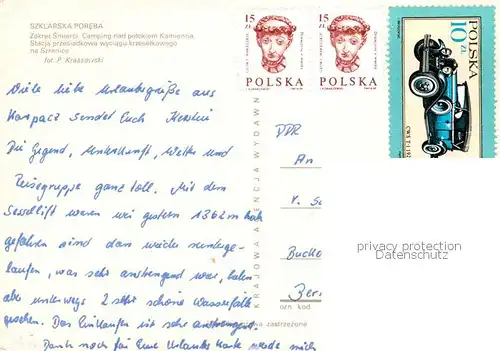 SZKLARSKA PORĘBA
Zakręt Śmierci. Camping nad potokiem Kamienna.
Stacja przesiadkowa wyciągu krzesełkowego
na Szrenicę
fot. P. Krassowski
15 ZŁ
15 ZŁ
POLSKA
POLSKA
POLSKA
10 ZŁ
CWS T-1 192
Viele liebe Urlaubsgrüße aus
Karpacz sendet Euch Kerstin
Die Gegend, Unterkunft, Wetter und
Reisegruppe ganz toll. Mit dem
Sessellift waren wir gestern 1362 m hoch
gefahren sind dann wieder runterge-
laufen, was sehr anstrengend war, haben
aber unterwegs 2 sehr schöne Wasserfälle
gesehen. Das Einkaufen ist sehr anstrengend.
Dank noch für Eure Urlaubskarte werde mich
KRAJOWA AGENCJA WYDAWN
DDR
An
V. Sc
Bucko
Ber
privacy protection
Datenschutz
ozn kod
zastrzeżone